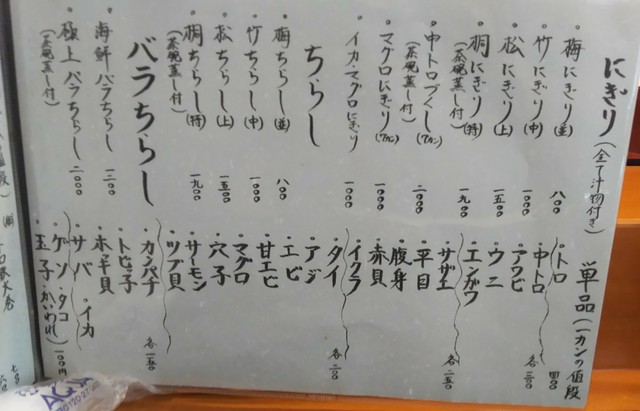 にぎり(全て汁物付き)
・梅にぎり(並) 八〇〇
・竹にぎり(中) 一〇〇〇
・松にぎり(上) 一五〇〇
・桐にぎり(特) 一九〇〇
(茶碗蒸し付)
・中トロづくし(7カン) 二〇〇〇
(茶碗蒸し付)
・マグロにぎり(7カン) 一〇〇〇
・イカマグロにぎり 一〇〇〇
ちらし
・梅ちらし(並) 八〇〇
・竹ちらし(中) 一〇〇〇
・松ちらし(上) 一五〇〇
・桐ちらし(特) 一九〇〇
(茶碗蒸し付)
バラちらし
・海鮮バラちらし 一二〇〇
・極上バラちらし 二〇〇〇
(茶碗蒸し付)
単品(一カンの値段
・トロ 四〇〇
・中トロ 各三〇〇
・アワビ
・ウニ
・エンガワ 各二五〇
・サザエ
・平目
・腹身
・赤貝
・イクラ 各二〇〇
・タイ
・アジ
・エビ
・甘エビ
・マグロ
・穴子
・サーモン
・ツブ貝
・カンパチ 各一五〇
・トビッ子
・ホッキ貝
・サバ ・イカ
・ゲソ ・タコ
・玉子 ・かいわれ) 一〇〇円